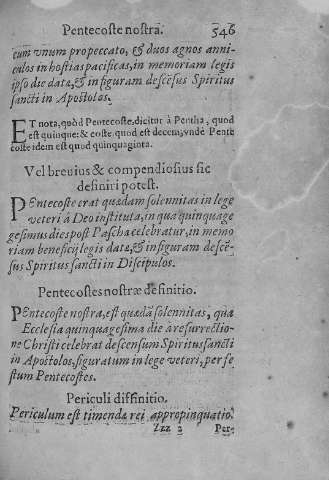 Pentecoste nostra. 546
cum vnum pro peccato, & duos agnos anni-
culos in hostias pacificas, in memoriam legis
ipso die data, & in figuram descẽsus Spiritus
sancti in Apostolos.
ET nota, quòd Pentecoste, dicitur à Pentia, quod
est quinque: & coste. quod est decem, vndè Pente
coste idem est quod quinquaginta.
Vel breuius & compendiosius sic
definiri potest.
PEntecoste erat quædam solennitas in lege
veteri à Deo instituta, in qua quinquage
gesimus dies post Pascha celebratur, in memo
riam beneficij legis data, & in figuram descẽ-
sus Spiritus sancti in Discipulos.
Pentecostes nostræ definitio.
PEntecoste nostra, est quædã solennitas, qua
Ecclesia quinquagesima die à resurrectio-
ne Christi celebrat descensum Spiritus sancti
in Apostolos, figuratum in lege veteri, per fe
stum Pentecostes.
Periculi diffinitio.
Periculum est timendæ rei appropinquatio.
Zzz 2 Per-